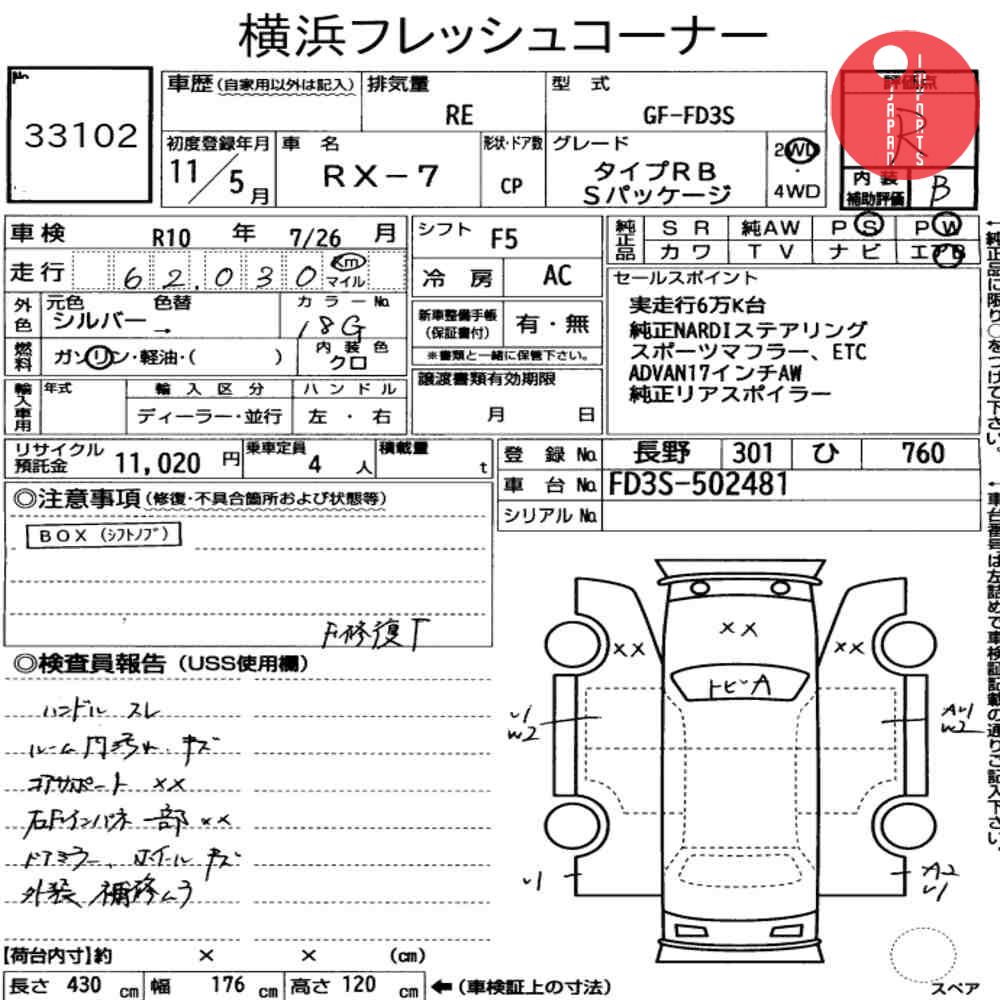 横浜フレッシュコーナー
No
33102
車歴(自家用以外は記入)
排気量
RE
型 式
GF-FD3S
評価点
R
IMPORTS
JAPAN
初度登録年月
11/5月
車 名
RX-7
形状・ドア数
CP
グレード
タイプRB
Sパッケージ
2WD
4WD
内装
補助評価
B
車検 R10 年 7/26 月
走行 62,030 km マイル
シフト F5
冷房 AC
純正品
SR 純AW PS PW
カワ TV ナビ エアB
外色
元色 色替
シルバー →
カラーNo.
18G
燃料
ガソリン・軽油・( )
内装色
クロ
新車整備手帳
(保証書付)
有・無
※書類と一緒に保管下さい。
セールスポイント
実走行6万K台
純正NARDIステアリング
スポーツマフラー、ETC
ADVAN17インチAW
純正リアスポイラー
輸入車用
年式
輸入区分
ディーラー・並行
ハンドル
左・右
譲渡書類有効期限
月 日
リサイクル
預託金
11,020 円
乗車定員
4 人
積載量
t
登録No. 長野 301 ひ 760
車台No. FD3S-502481
シリアルNo.
←純正品に限り○をつけて下さい。
←車台番号は左詰めで車検証記載の通りご記入下さい。
◎注意事項(修復・不具合箇所および状態等)
BOX (シフトノブ)
F修復T
◎検査員報告(USS使用欄)
ハンドル スレ
ルーム内汚れ、キズ
コアサポート ××
右Fインパネ一部××
ドアミラー、ホイールキズ
外装 補修ムラ
××
××
××
トビA
U1
W2
A1U1
W2
U1
A2
U1
スペア
【荷台内寸】約 × × (cm)
長さ 430 cm 幅 176 cm 高さ 120 cm ←(車検証上の寸法)